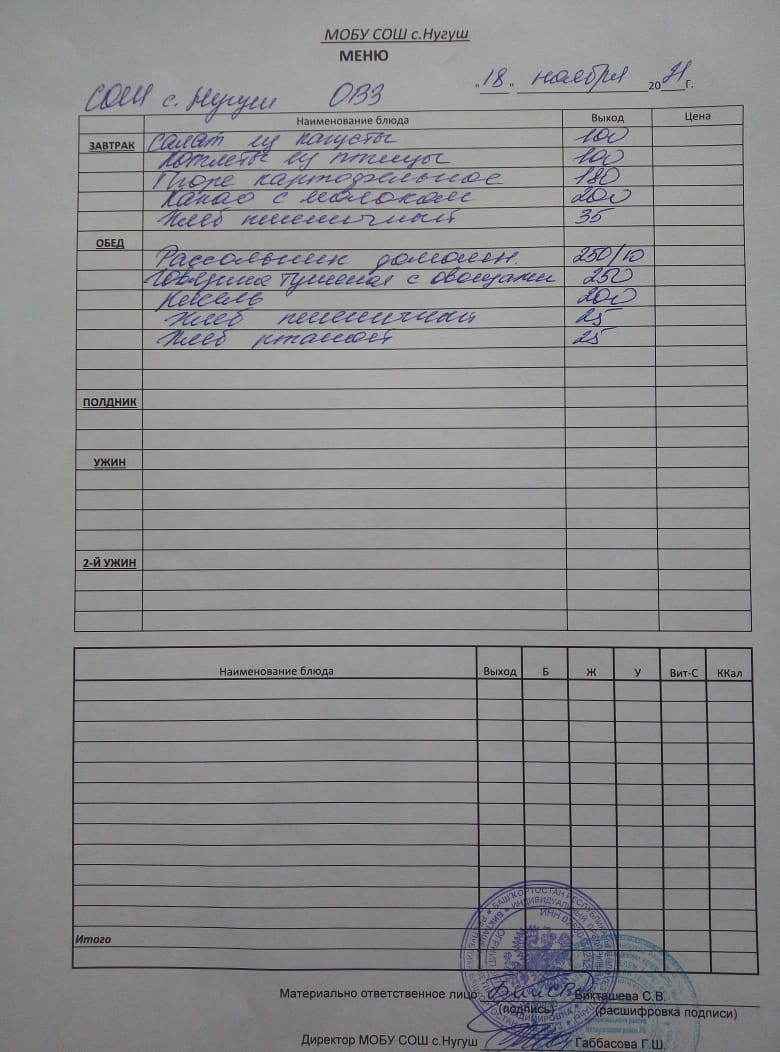 МОБУ СОШ с.Нугуш
МЕНЮ
СОШ с. Нугуш ОВЗ "18" ноября 2021г.
Наименование блюда Выход Цена
ЗАВТРАК Салат из капусты 100
Котлеты из птицы 100
Пюре картофельное 180
Какао с молоком 200
Хлеб пшеничный 35
ОБЕД
Рассольник домашн. 250/10
Говядина тушеная с овощами 250
Кисель 200
Хлеб пшеничный 25
Хлеб ржаной 25
ПОЛДНИК
УЖИН
2-Й УЖИН
Наименование блюда Выход Б Ж У Вит-С ККал
Итого
Материально ответственное лицо Бикташева С.В.
(подпись) (расшифровка подписи)
Директор МОБУ СОШ с.Нугуш Габбасова Г.Ш.